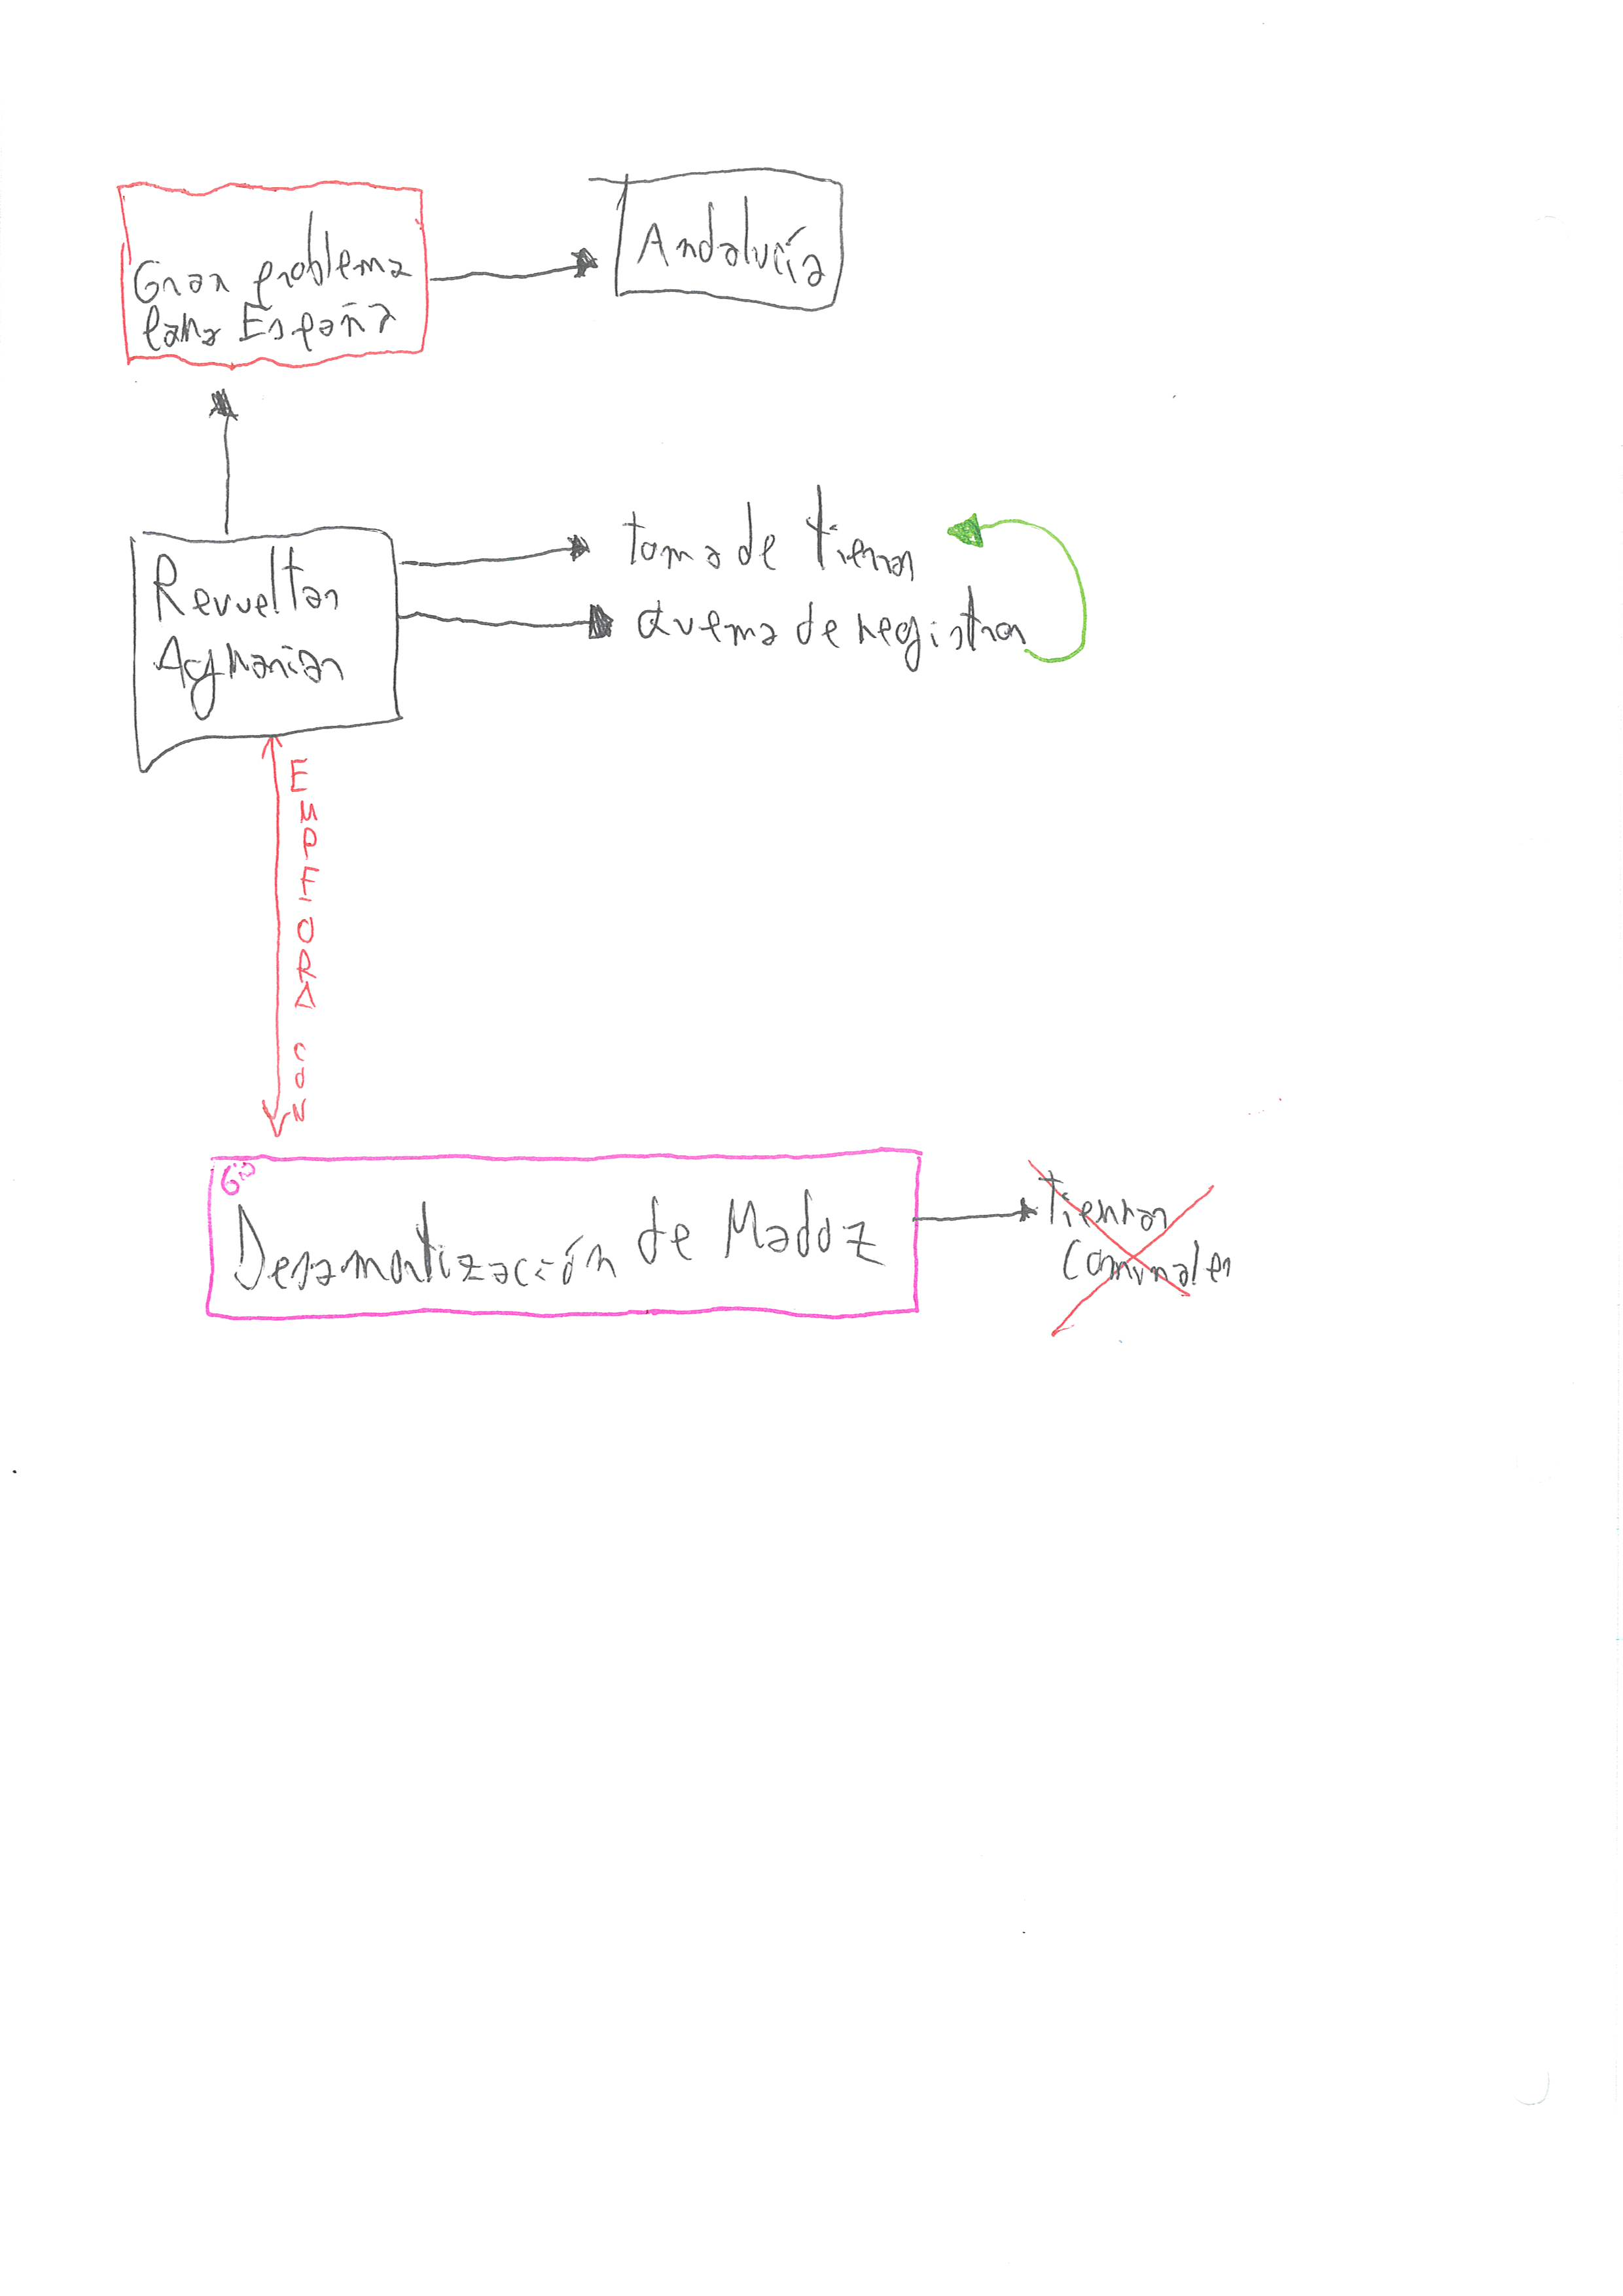 Gran problema
para España
Andalucía
Revueltas
Agrarias
toma de tierras
quema de registros
EMPEORA CON
Desamortización de Madoz
tierras
comunales